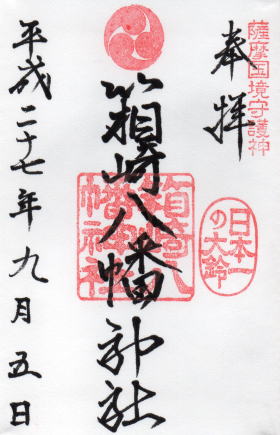 薩摩国境守護神
奉拝
日本一の大鈴
箱崎八幡神社
箱崎八幡神社
平成二十七年九月五日